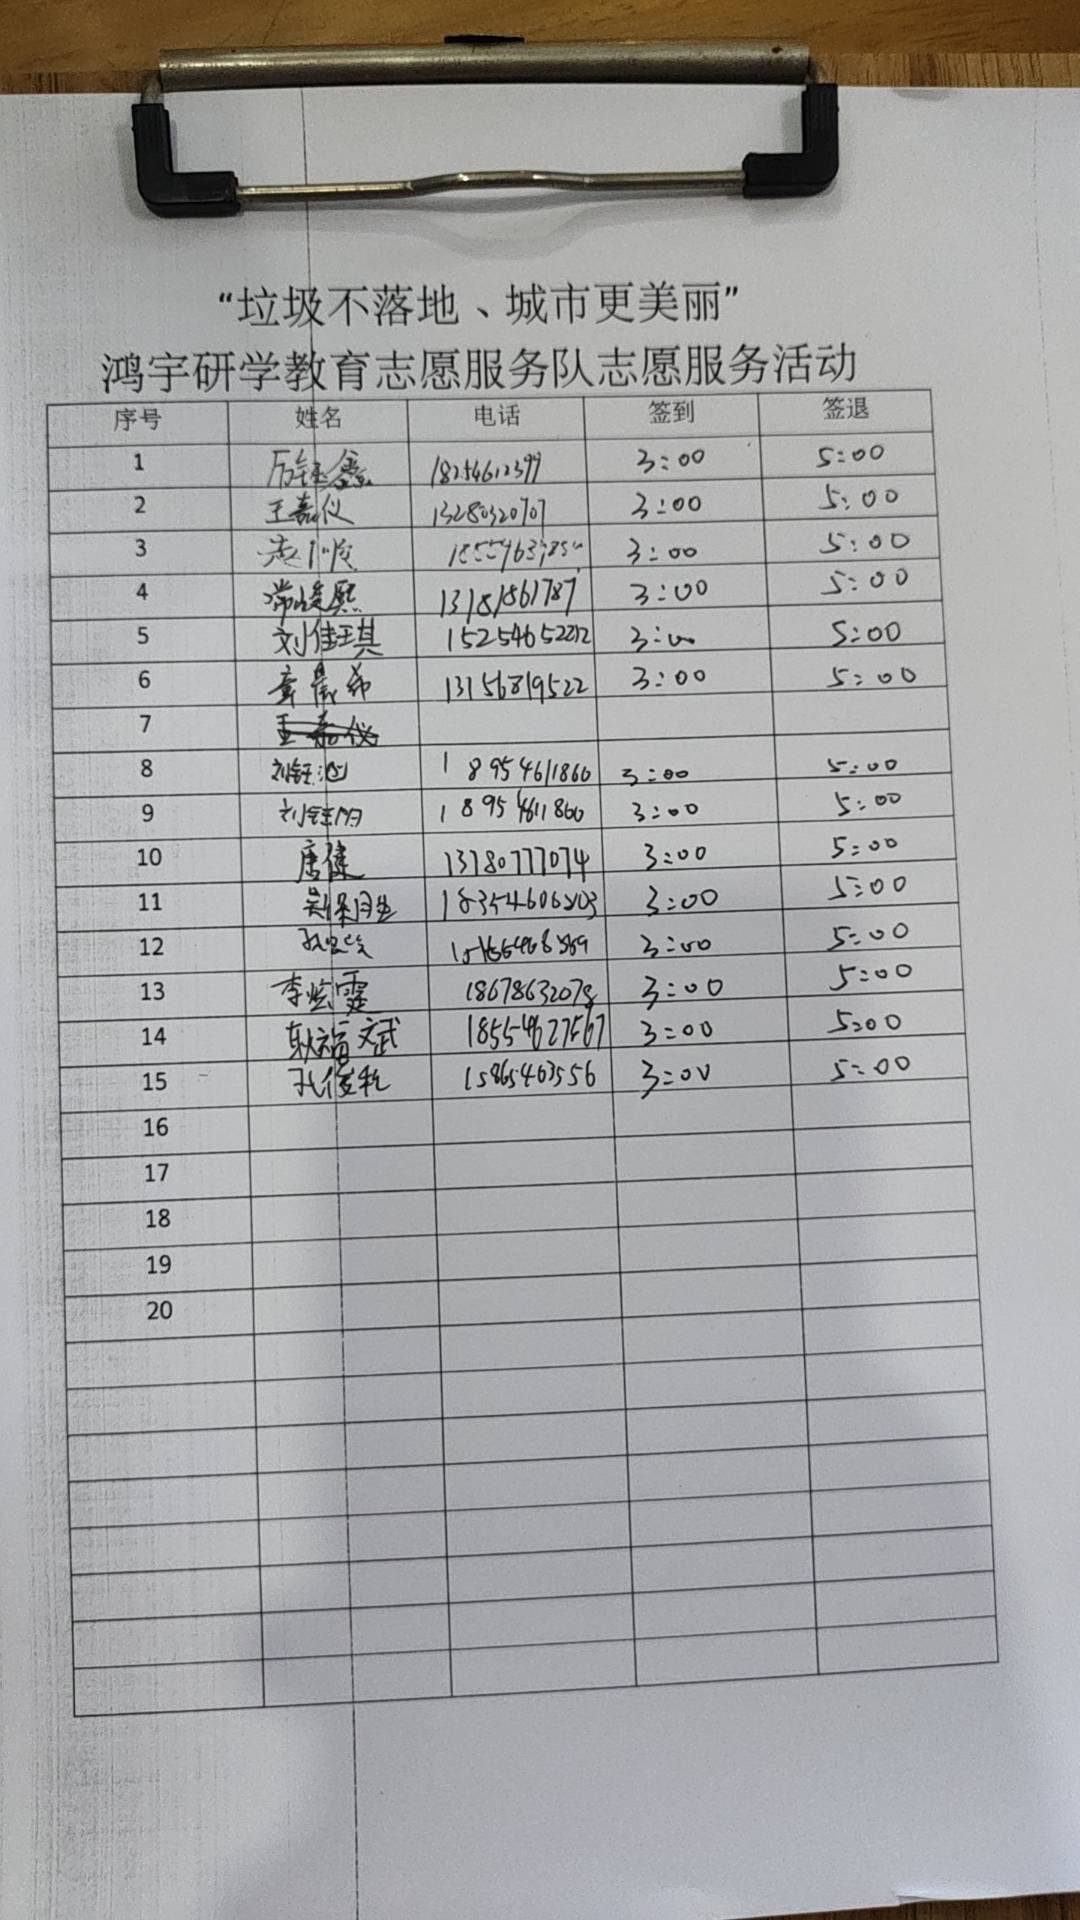 “垃圾不落地、城市更美丽”
鸿宇研学教育志愿服务队志愿服务活动
序号 姓名 电话 签到 签退
1 厉钰鑫 18254612399 3:00 5:00
2 王嘉仪 13280320707 3:00 5:00
3 3:00 5:00
4 常峻熙 13181861787 3:00 5:00
5 刘佳琪 15254652212 3:00 5:00
6 章晨希 13156819522 3:00 5:00
7 王嘉仪
8 18954611860 3:00 5:00
9 刘钰明 18954611860 3:00 5:00
10 唐健 13780777074 3:00 5:00
11 3:00 5:00
12 3:00 5:00
13 18678632078 3:00 5:00
14 耿福文武 18554627567 3:00 5:00
15 15865463556 3:00 5:00
16
17
18
19
20